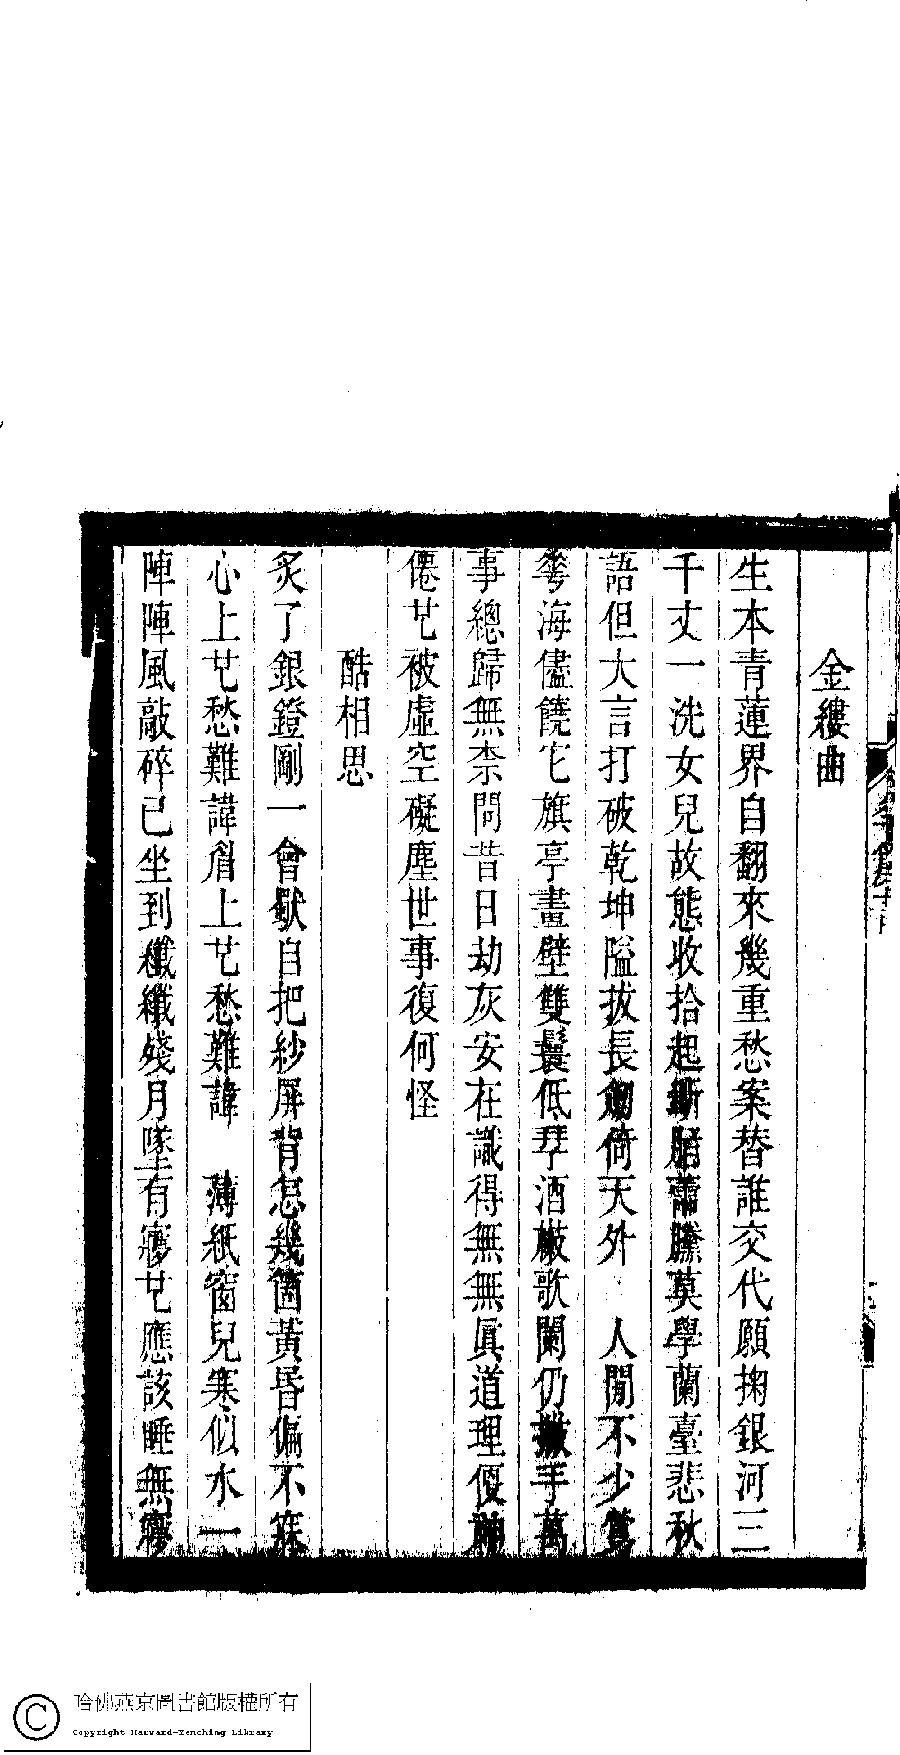 金縷曲
生本青蓮界自翻來幾重愁案替誰交代願掬銀河三
千丈一洗女兒故態收拾起斷脂零黱莫學蘭臺悲秋
語但大言打破乾坤隘拔長劒倚天外　人閒不少鶯
華海儘饒它旗亭畫壁雙鬟低拜酒散歌闌仍撒手萬
事總歸無柰問昔日劫灰安在識得無無眞道理便神
僊也被虛空礙塵世事復何怪
酷相思
炙了銀鐙剛一會自把紗屏背怎幾箇黃昏偏不寐
心上也愁難諱眉上也愁難諱　薄紙窗兒寒似水一
陣陣風敲碎已坐到纖纖殘月墜有㝱也應該睡無㝱
哈佛燕京圖書館版權所有
Copyright Harvard-Yenching Library